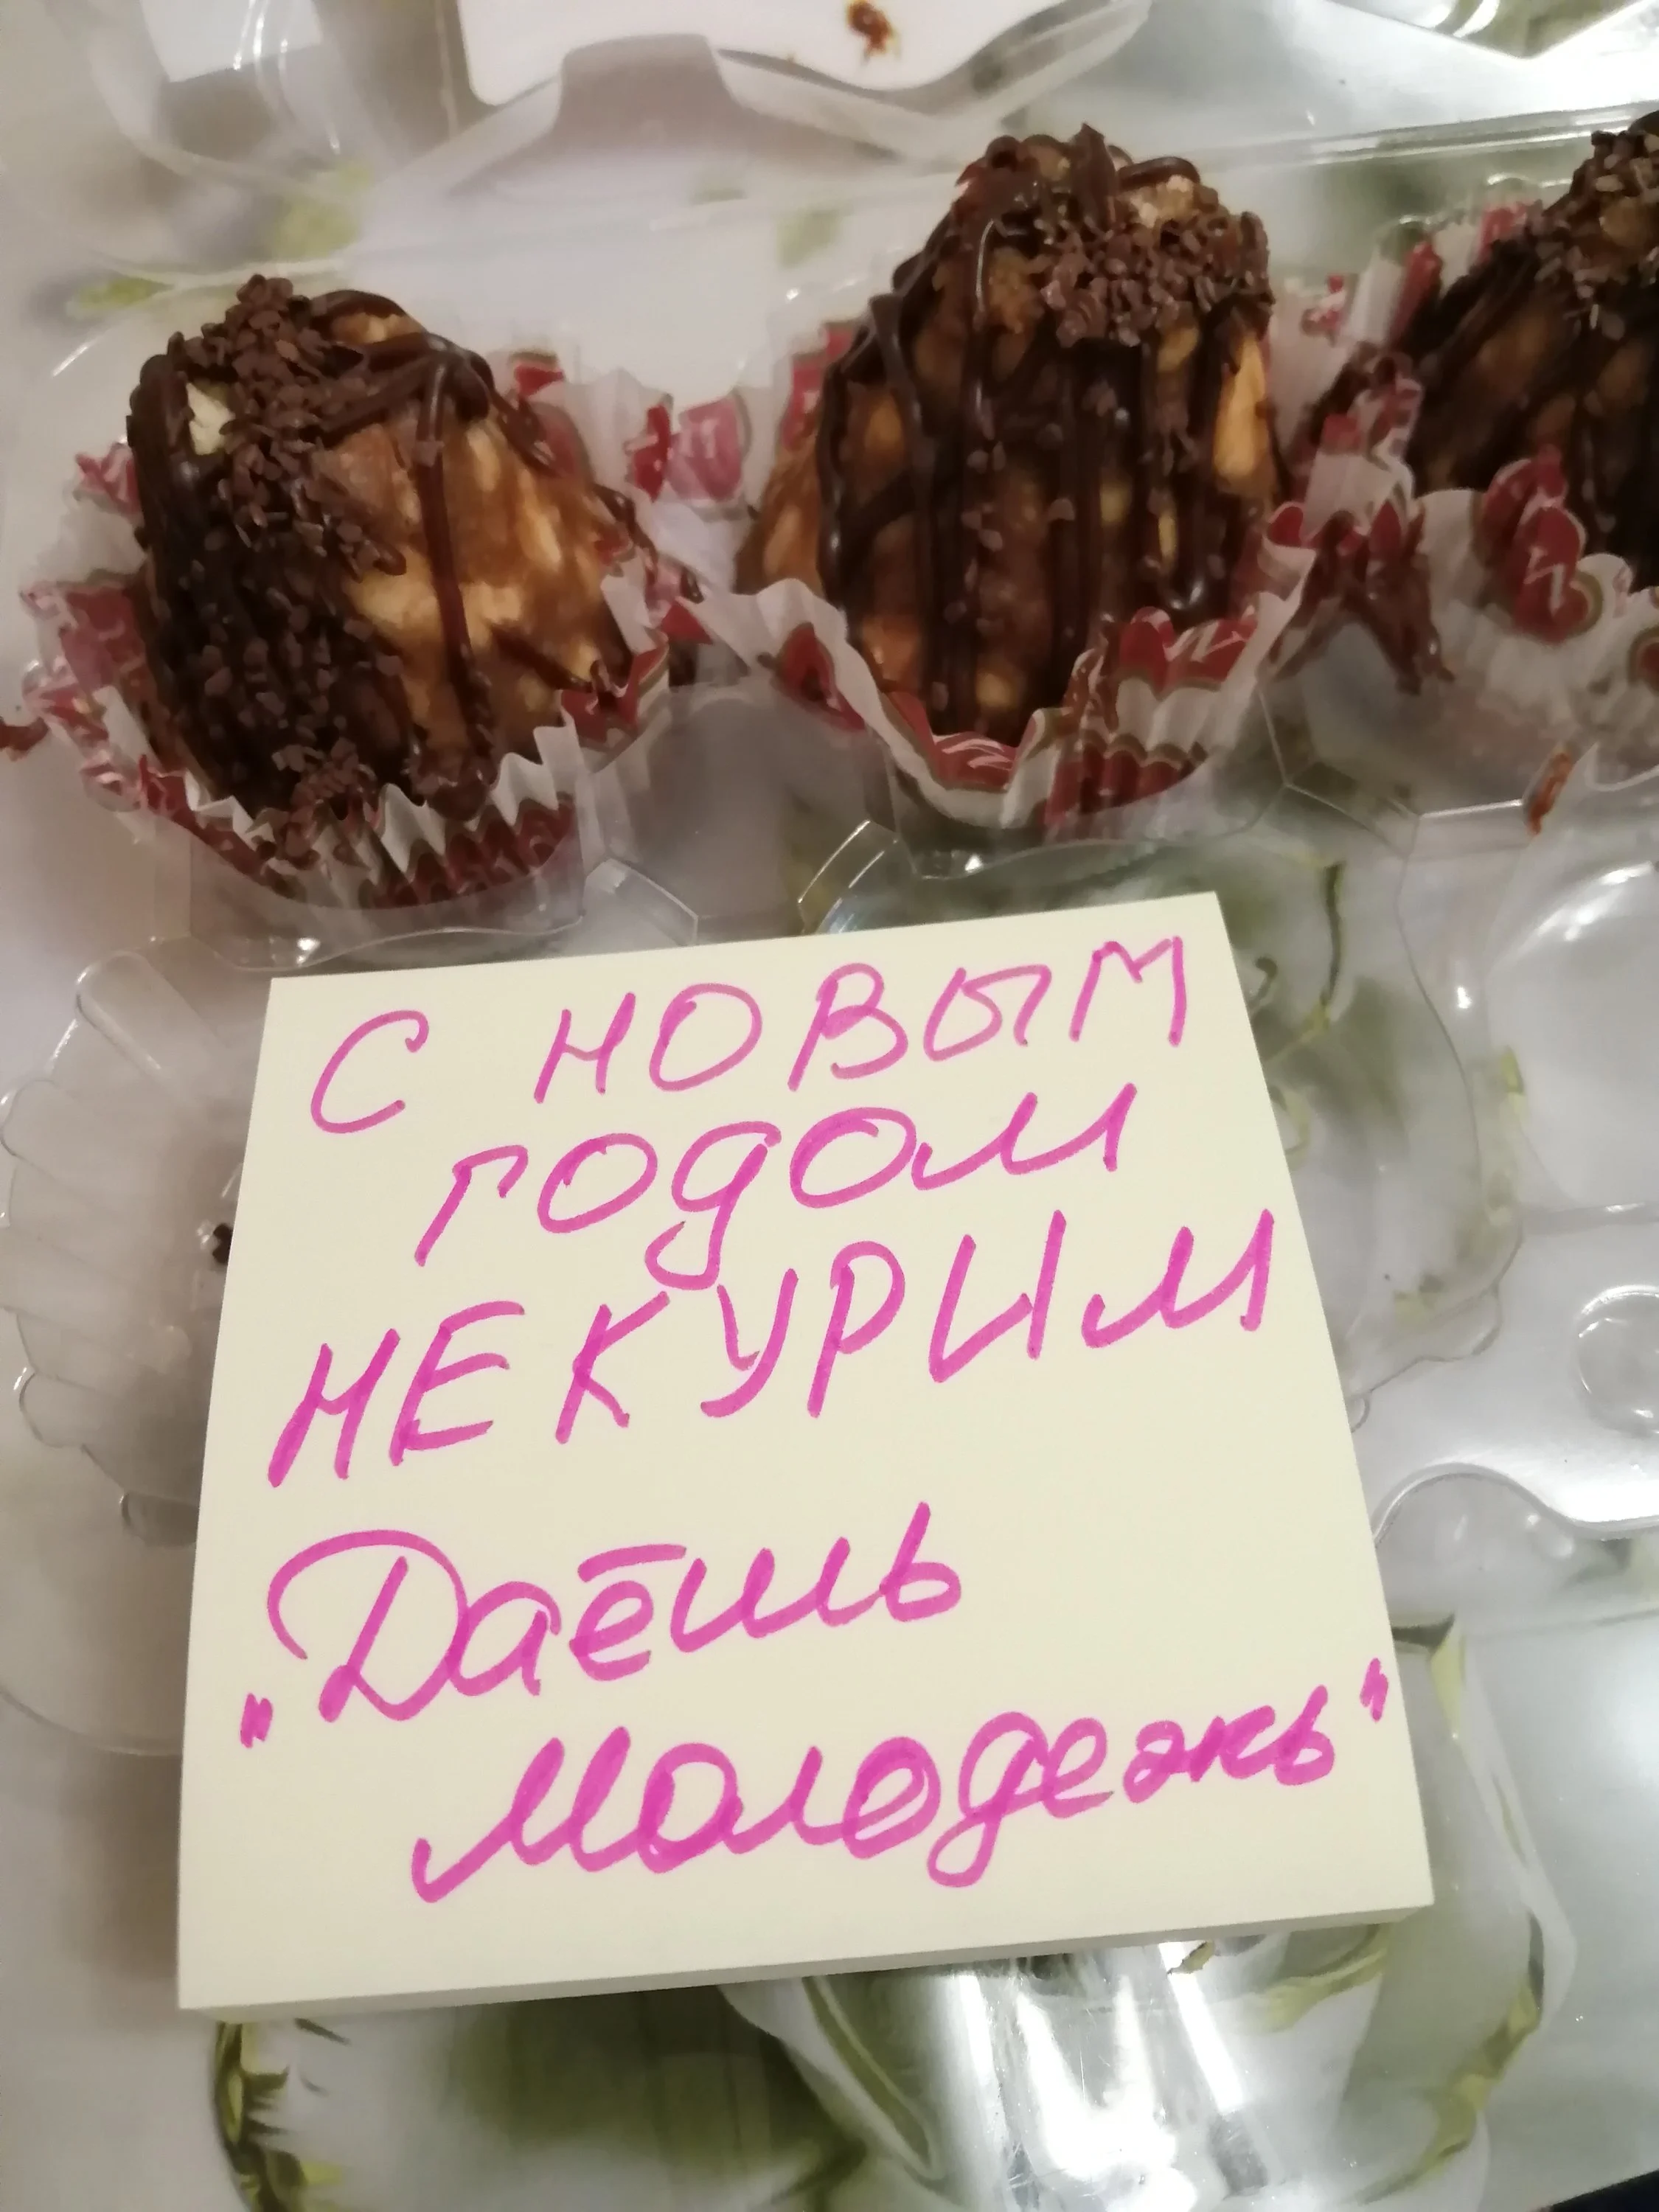 С НОВЫМ
ГОДОМ
НЕКУРИМ
"Даёшь
Молодежь"